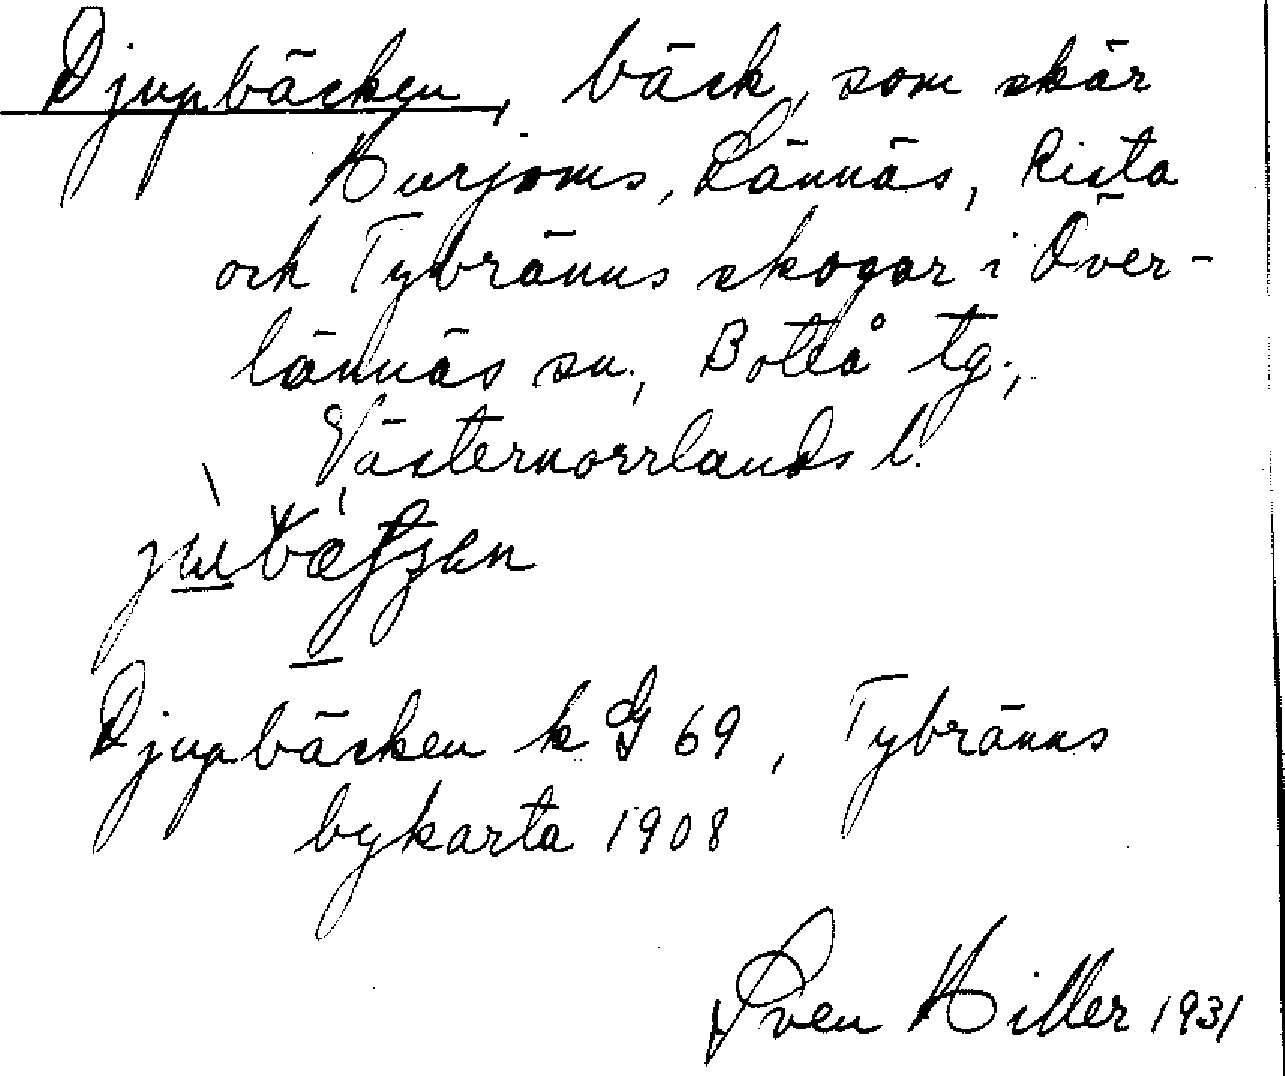 Djupbäcken, bäck, som skär
Kurjoms, Lännäs, Rista
och Tybränns skogar i Över-
lännäs sn., Boteå tg.,
Västernorrlands l.
Djupbäcken k G 69, Tybränns
bykarta 1908
Sven Hiller 1931